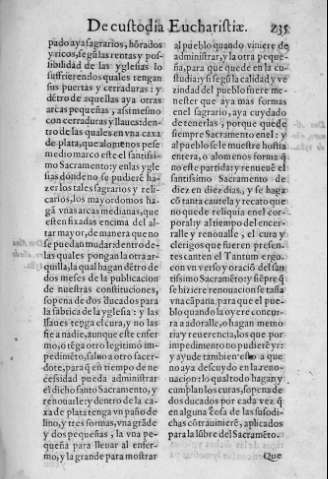 De custodia Eucharistiæ. 235
pado aya sagrarios, hõrados
y ricos, segũ las rentas y pos-
sibilidad de las yglesias lo
suffriere en dos quales tengan
sus puertas y cerraduras: y
dẽtro de aquellas aya otras
arcas pequeñas, assimesmo
con cerraduras y llaues: den-
tro de las quales en vna caxa
de plata, que alomenos pese
medio marco este el santissi
mo Sacramento y en las ygle
sias dõnde no se pudierẽ ha-
zer los tales sagrarios y reli-
carios, los mayordomos ha-
gã vnas arcas medianas, que
esten fixadas encima del al-
tar mayor, de manera que no
se puedan mudar: dentro de-
las quales pongan la otra ar-
quilla, la qual hagan dẽtro de
dos meses de la publicacion
de nuestras constituciones,
so pena de dos ducados para
la fabrica de la yglesia: y las
llaues tenga el cura, y no las
fie a nadie, aunque este enfer
mo, o tẽga otro legitimo im-
pedimẽto, saluo a otro sacer-
dote, para q̃ en tiempo de ne
cessidad pueda administrar
el dicho santo Sacramento, y
renouarle: y dentro de la ca-
xa de plata tenga vn paño de
lino, y tres formas, vna grãde
y dos pequeñas, la vna pe-
queña para lleuar al enfer-
mo, y la grande para mostrar
al pueblo quando viniere de
administrar, y la otra peque-
ña, para que quede en la cu-
stodia: y si segũ la calidad y ve
zindad del pueblo fuere me-
nester que aya mas formas
en el sagrario, aya cuydado
de tenerlas, porque quede
siempre Sacramento en el: y
al pueblo se le muestre hostia
entera, o alomenos forma q̃
no este partida: y renueuẽ el
santissimo Sacramento de
diez en diez dias, y se haga
cõ tanta cautela y recato que
no quede reliquia en el cor-
poral: y al tiempo del ence-
rralle y renoualle, el cura y
clerigos que fueren presen-
tes canten el Tantum ergo.
con vn verso y oraciõ del san
tissimo Sacramẽto: y siẽpre q̃
se hiziere renouacion se taña
vna cãpana, para que el pue-
blo quando la oyere concur-
ra a adoralle, o hagan memo-
ria y reuerencia, los que por
impedimento no pudierẽ yr:
y ayude tambien esto a que
no aya descuydo en la reno-
uacion: lo qual todo hagan y
cumplan los curas, so pena de
dos ducados por cada vez q̃
en alguna cosa de las susodi-
chas cõtrauinierẽ, aplicados
para la lũbre del Sacramẽto.
Que